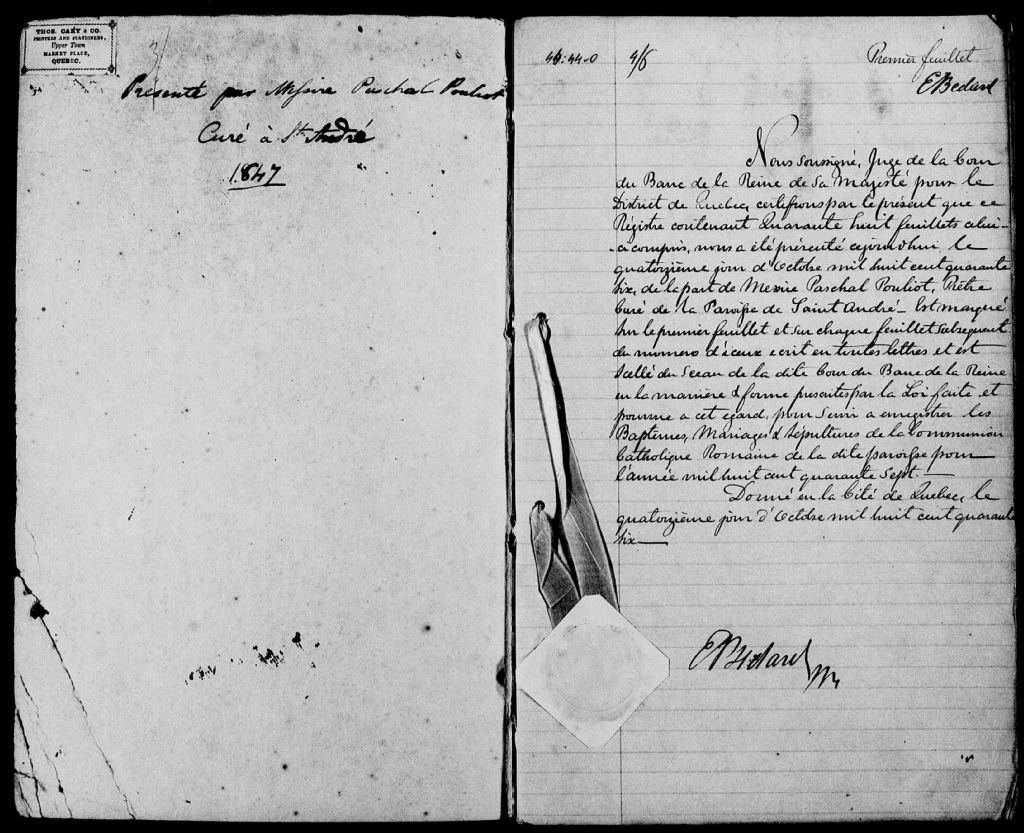 THOS. CARY & CO.
PRINTERS AND STATIONERS,
Upper Town
MARKET PLACE,
QUEBEC.
Présenté par Messire Paschal Pouliot
Curé à St. André
1847
4/6
Premier feuillet
E Bedard
Nous soussigné, Juge de la Cour
du Banc de la Reine de Sa Majesté pour le
District de Quebec, certifions par le présent que ce
Régistre contenant Quarante huit feuillets celui-
-ci compris, nous a été présenté cejourdhui le
quatorzième jour d'Octobre mil huit cent quarante
six, de la part de Messire Paschal Pouliot, Prêtre
Curé de la Paroisse de Saint André - Est marqué
sur le premier feuillet et sur chaque feuillet subsequent
du numero d'iceux ecrit en toutes lettres et est
scellé du Sceau de la dite Cour du Banc de la Reine
en la manière & forme prescrites par la Loi faite et
pourvue a cet egard, pour servir a enregistrer les
Baptemes, Mariages & Sépultures de la Communion
Catholique Romaine de la dite paroisse pour
l'année mil huit cent quarante Sept. —
Donné en la Cité de Quebec, le
quatorzième jour d'Octobre mil huit cent quarante
six —
E Bedard